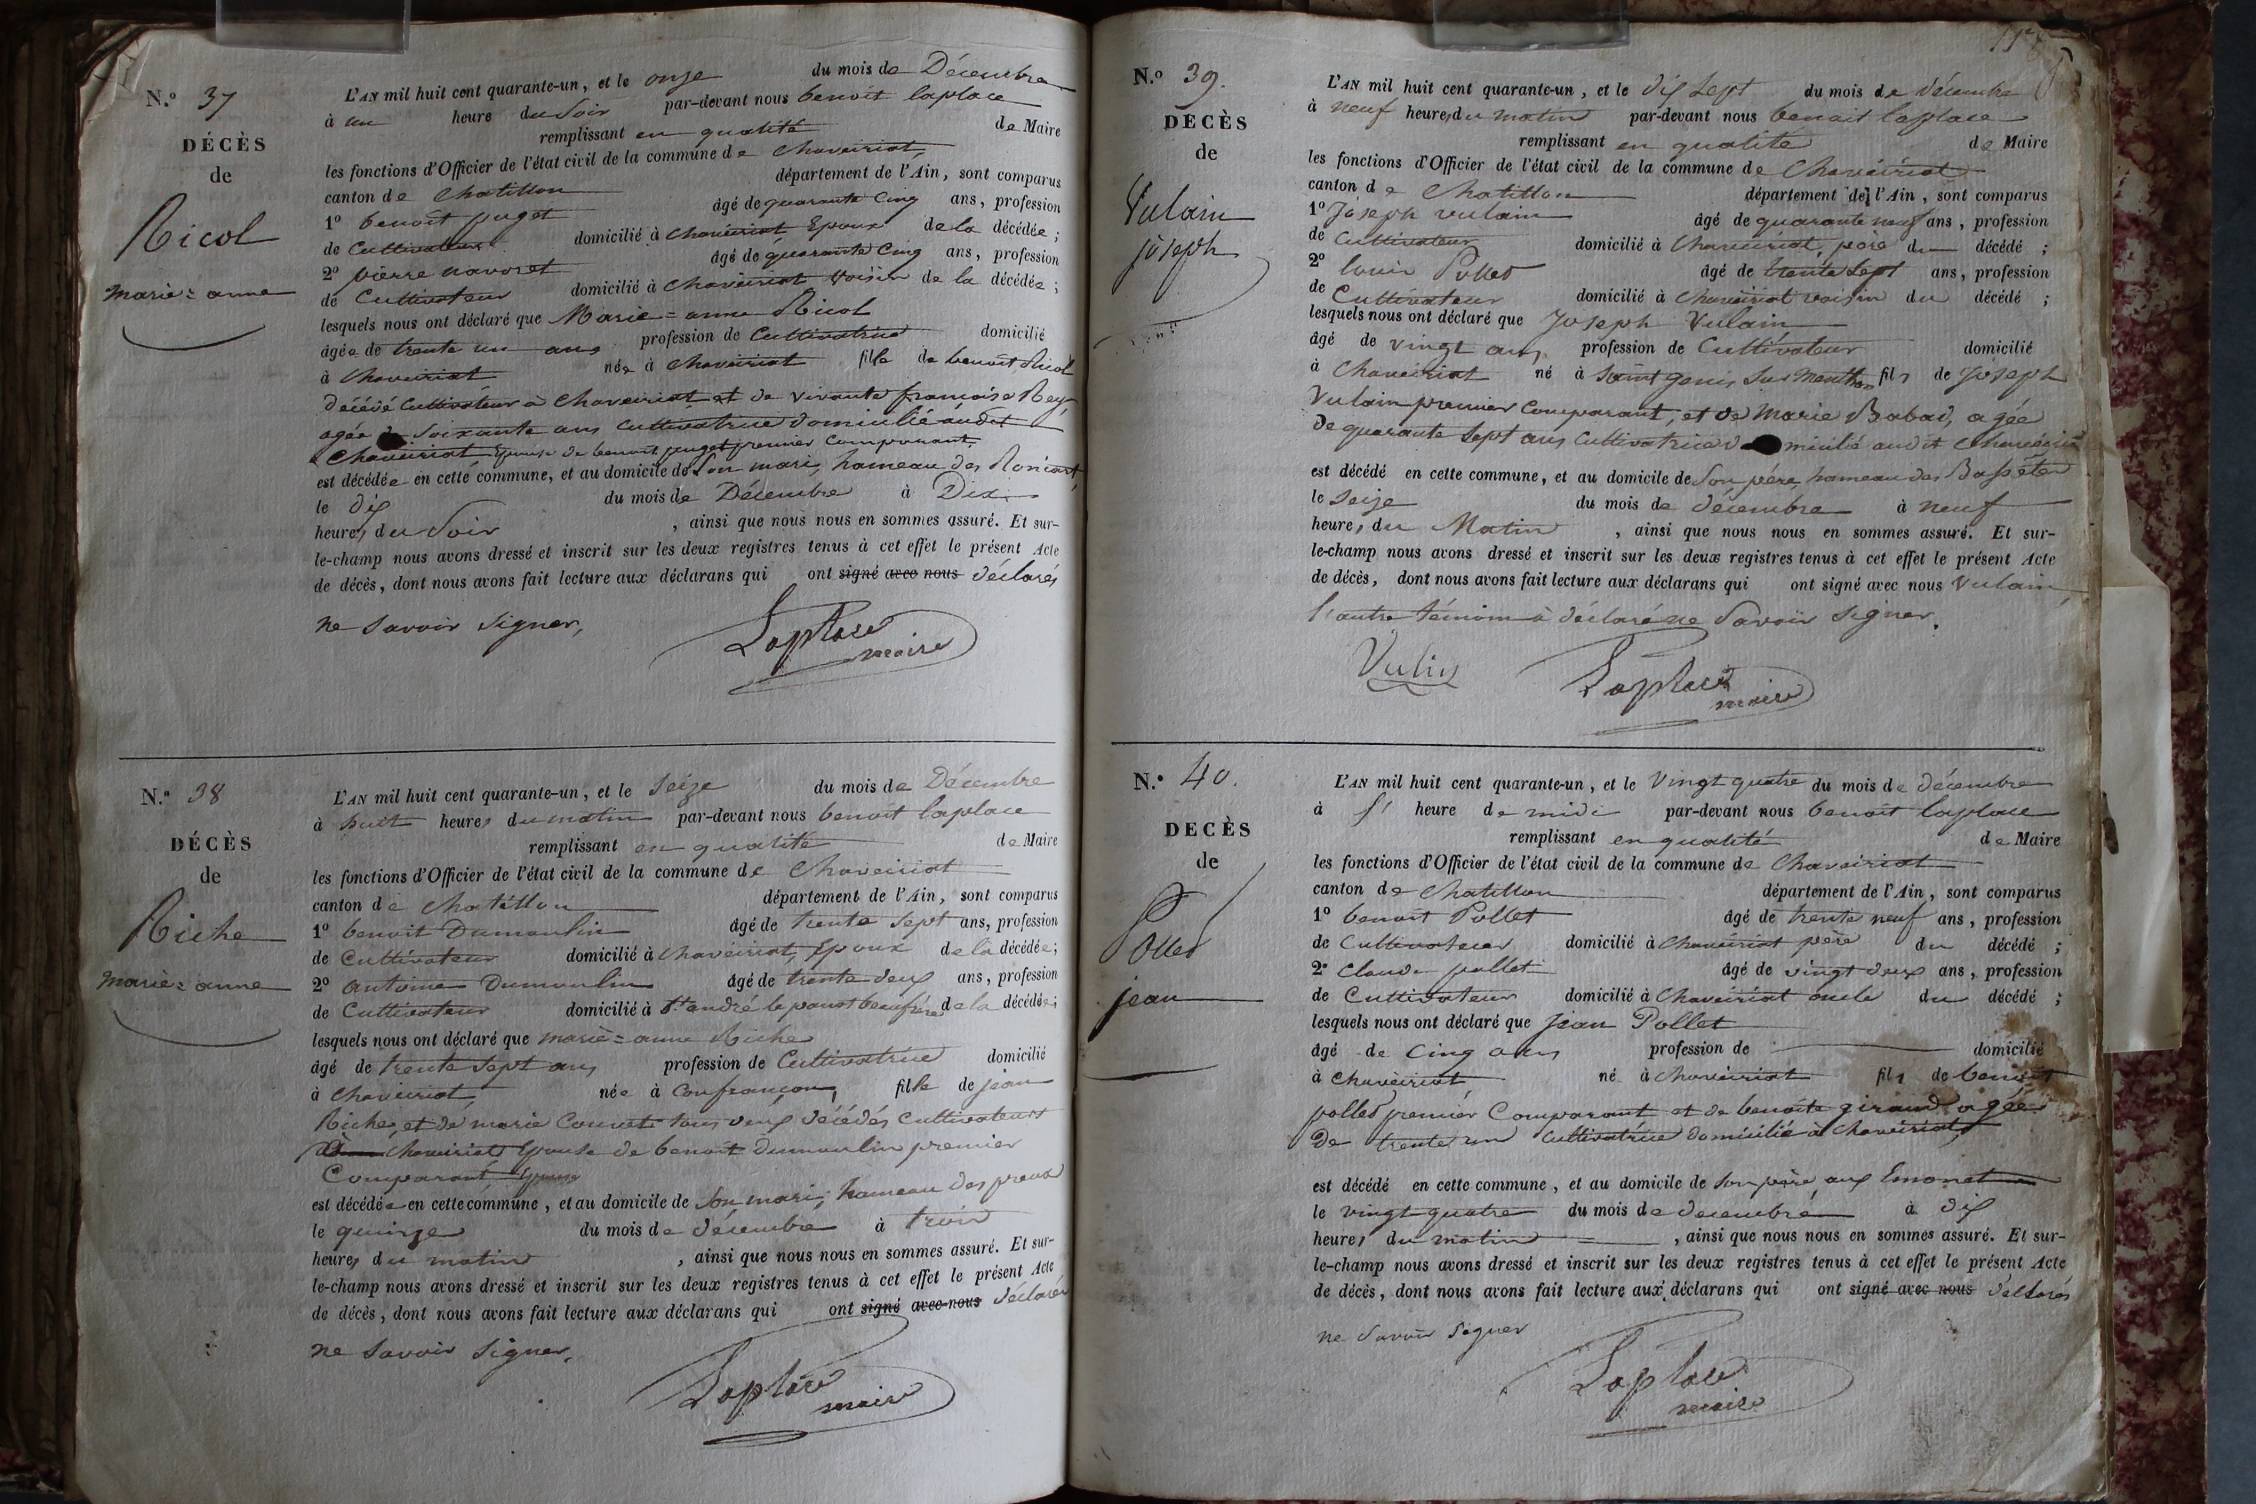 N.o 37
DÉCÈS
de
Nicol
marie=anne
L'AN mil huit cent quarante-un, et le onze du mois de Décembre
à un heure du Soir par-devant nous benoit laplace
remplissant en qualité de Maire
les fonctions d'Officier de l'état civil de la commune de Chaveiriat,
canton de Chatillon département de l'Ain, sont comparus
1o benoit puget âgé de quarante Cinq ans, profession
de Cultivateur domicilié à Chaveiriat Epoux de la décédée;
2o pierre navoret âgé de quarante Cinq ans, profession
de Cultivateur domicilié à Chaveiriat Voisin de la décédée;
lesquels nous ont déclaré que Marie=anne Nicol
âgée de trente un ans profession de Cultivatrice domicilié
à Chaveiriat née à Chaveiriat fille de benoit Nicol
Décédé Cultivateur à Chaveiriat et de vivante françoise Rey,
agée de Soixante ans Cultivatrice domicilié audit
Chaveiriat Epouse de benoit puget premier Comparant.
est décédée en cette commune, et au domicile de Son mari, hameau des
le dix du mois de Décembre à Dix
heures du Soir, ainsi que nous nous en sommes assuré. Et sur-
le-champ nous avons dressé et inscrit sur les deux registres tenus à cet effet le présent Acte
de décès, dont nous avons fait lecture aux déclarans qui ont signé avec nous déclarés
ne Savoir Signer,
Laplace
maire
N.o 38
DÉCÈS
de
Riche
marie=anne
L'AN mil huit cent quarante-un, et le Seize du mois de Décembre
à huit heures du matin par-devant nous benoit laplace
remplissant en qualité de Maire
les fonctions d'Officier de l'état civil de la commune de Chaveiriat
canton de Chatillon département de l'Ain, sont comparus
1o benoit Dumoulin âgé de trente Sept ans, profession
de Cultivateur domicilié à Chaveiriat, Epoux de la décédée;
2o antoine Dumoulin âgé de trente deux ans, profession
de Cultivateur domicilié à St. andré le panost beaufrère de la décédée;
lesquels nous ont déclaré que marie=anne Riche
âgé de trente Sept ans profession de Cultivatrice domicilié
à Chaveiriat, née à Confrançon, fille de jean
Riche, et de marie Couvert tous deux décédés Cultivateurs
à Chaveiriat Epouse de benoit Dumoulin premier
Comparant
est décédée en cette commune, et au domicile de Son mari, hameau des
le quinze du mois de décembre à trois
heures du matin, ainsi que nous nous en sommes assuré. Et sur-
le-champ nous avons dressé et inscrit sur les deux registres tenus à cet effet le présent Acte
de décès, dont nous avons fait lecture aux déclarans qui ont signé avec nous déclarés
ne Savoir Signer,
Laplace
maire
N.o 39.
DÉCÈS
de
Vulain
joseph
L'AN mil huit cent quarante-un, et le dix Sept du mois de décembre
à neuf heures du matin par-devant nous benoit laplace
remplissant en qualité de Maire
les fonctions d'Officier de l'état civil de la commune de Chaveiriat
canton de Chatillon département de l'Ain, sont comparus
1o joseph vulain âgé de quarante neuf ans, profession
de Cultivateur domicilié à Chaveiriat, père du décédé;
2o louis Pollet âgé de trente Sept ans, profession
de Cultivateur domicilié à Chaveiriat voisin du décédé;
lesquels nous ont déclaré que Joseph Vulain
âgé de vingt ans, profession de Cultivateur domicilié
à Chaveiriat né à Saint genis Sur Menthon fils de Joseph
Vulain premier Comparant, et de Marie Babad, agée
de quarante Sept ans, Cultivatrice domicilié audit Chaveiriat
est décédé en cette commune, et au domicile de Son père, hameau des
le Seize du mois de décembre à neuf
heures du Matin, ainsi que nous nous en sommes assuré. Et sur-
le-champ nous avons dressé et inscrit sur les deux registres tenus à cet effet le présent Acte
de décès, dont nous avons fait lecture aux déclarans qui ont signé avec nous Vulain,
l'autre témoin à déclaré ne Savoir Signer.
Laplace
maire
N.o 40.
DÉCÈS
de
Pollet
jean
L'AN mil huit cent quarante-un, et le Vingt quatre du mois de décembre
à heure de midi par-devant nous benoit laplace
remplissant en qualité de Maire
les fonctions d'Officier de l'état civil de la commune de Chaveiriat
canton de Chatillon département de l'Ain, sont comparus
1o benoit Pollet âgé de trente neuf ans, profession
de Cultivateur domicilié à Chaveiriat père du décédé;
2o Claude pollet âgé de vingt deux ans, profession
de Cultivateur domicilié à Chaveiriat oncle du décédé;
lesquels nous ont déclaré que Jean Pollet
âgé de Cinq ans profession de domicilié
à Chaveiriat né à Chaveiriat fils de benoit
pollet premier Comparant et de benoite giraud agée
De trente un Cultivatrice domicilié à Chaveiriat,
est décédé en cette commune, et au domicile de Son père, aux Emonet
le vingt quatre du mois de décembre à dix
heures du matin, ainsi que nous nous en sommes assuré. Et sur-
le-champ nous avons dressé et inscrit sur les deux registres tenus à cet effet le présent Acte
de décès, dont nous avons fait lecture aux déclarans qui ont signé avec nous déclarés
ne Savoir Signer
Laplace
maire